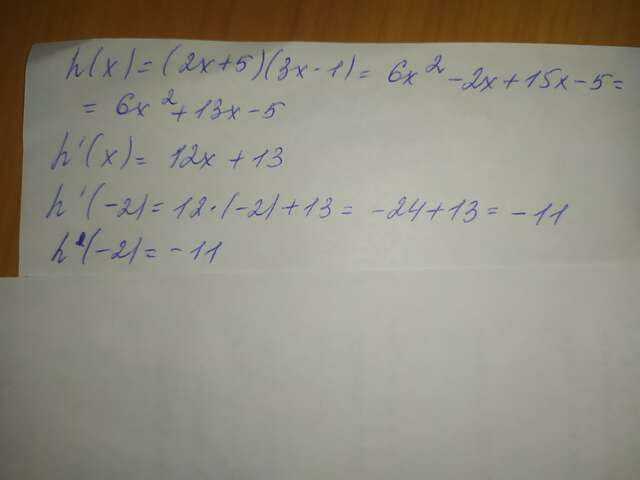 h(x) = (2x+5)(3x-1) = 6x² - 2x + 15x - 5 =
= 6x² + 13x - 5
h'(x) = 12x + 13
h'(-2) = 12·(-2) + 13 = -24 + 13 = -11
h'(-2) = -11